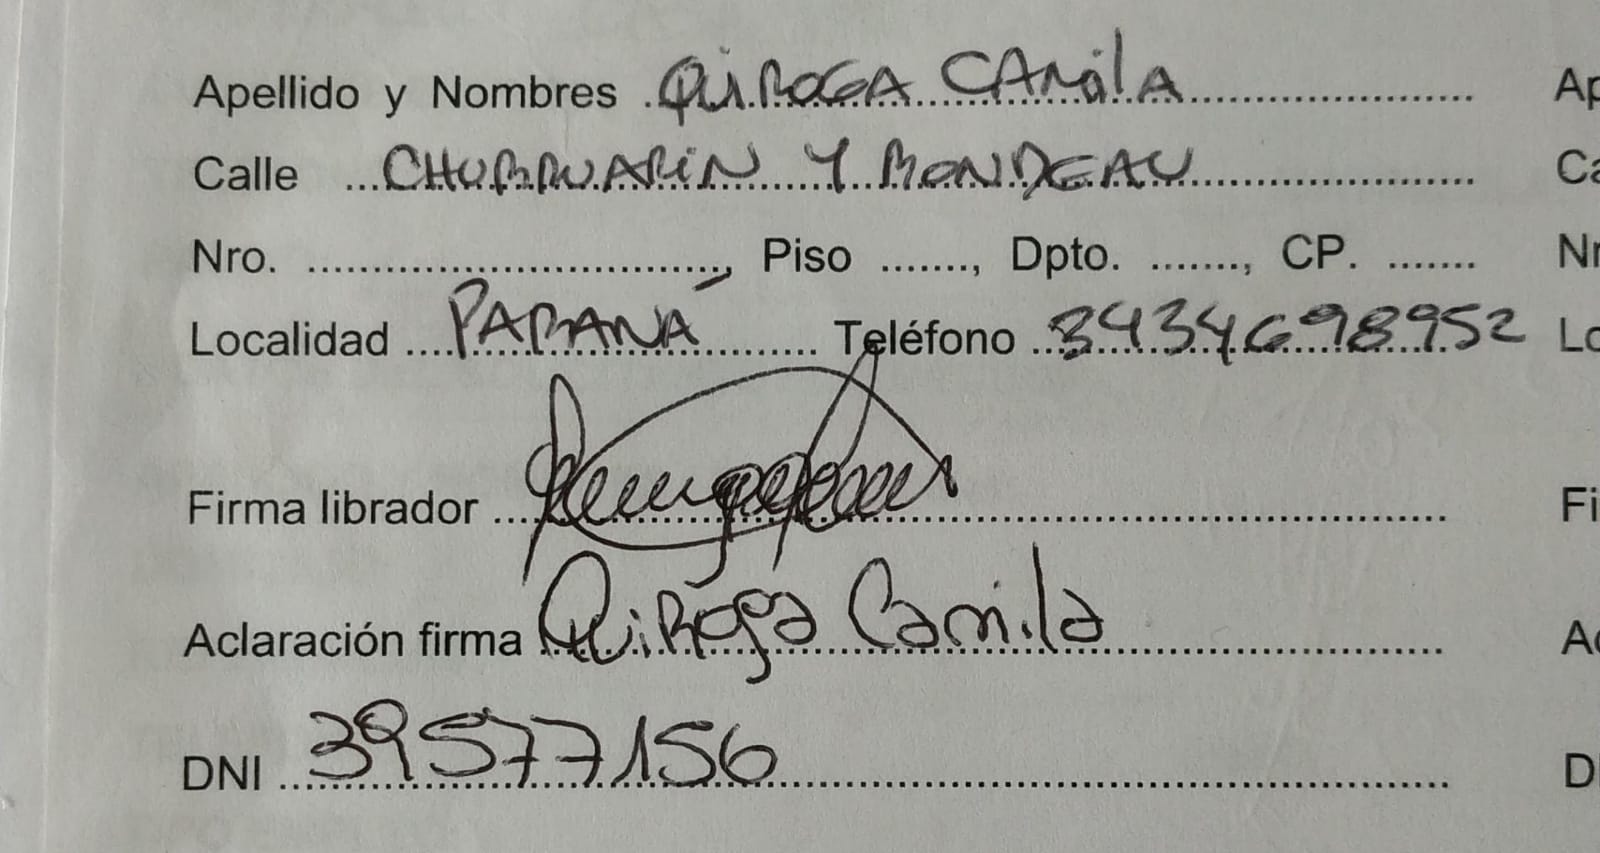 Apellido y Nombres QUIROGA CAMILA
Calle CHURRUARIN Y RONDEAU
Nro. , Piso , Dpto. , CP.
Localidad PARANÁ Teléfono 3434698952
Firma librador
Aclaración firma Quiroga Camila
DNI 39577156
Ap
Ca
Nr
Lo
Fi
Ac
D